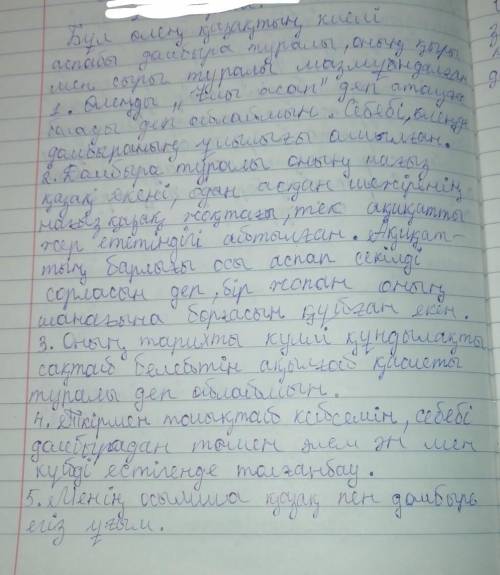 Бұл өлең қазақтың киелі
аспабы домбыра туралы, оның қыры
мен сыры туралы мазмұндалған
1. Өлеңді "Ұлы аспап" деп атауға
болады деп ойлаймын. Себебі, өлеңде
домбыраның ұлылығы айтылған.
2. Домбыра туралы оның нағыз
қазақ екені, одан асқан шежіренің
нағыз қазақ жоқтағы, тек ақиқатты
жер ететіндігі айтылған. Ақиқат-
тың барлығы осы аспап секілді
сорласын деп, бір жопан оның
шанағына борғасын құйған екен.
3. Оның тарихты күміс құндылақты
сақтаб келебтін ақылғаб қасиеті
туралы деп ойлаймын.
4. Пікірмен толықтаб кебсемін, себебі
домбырадан төмен жем ән мен
күйді естігенде толғанбау.
5. Менің осымша қазақ пен домбыра
егіз ұғым.